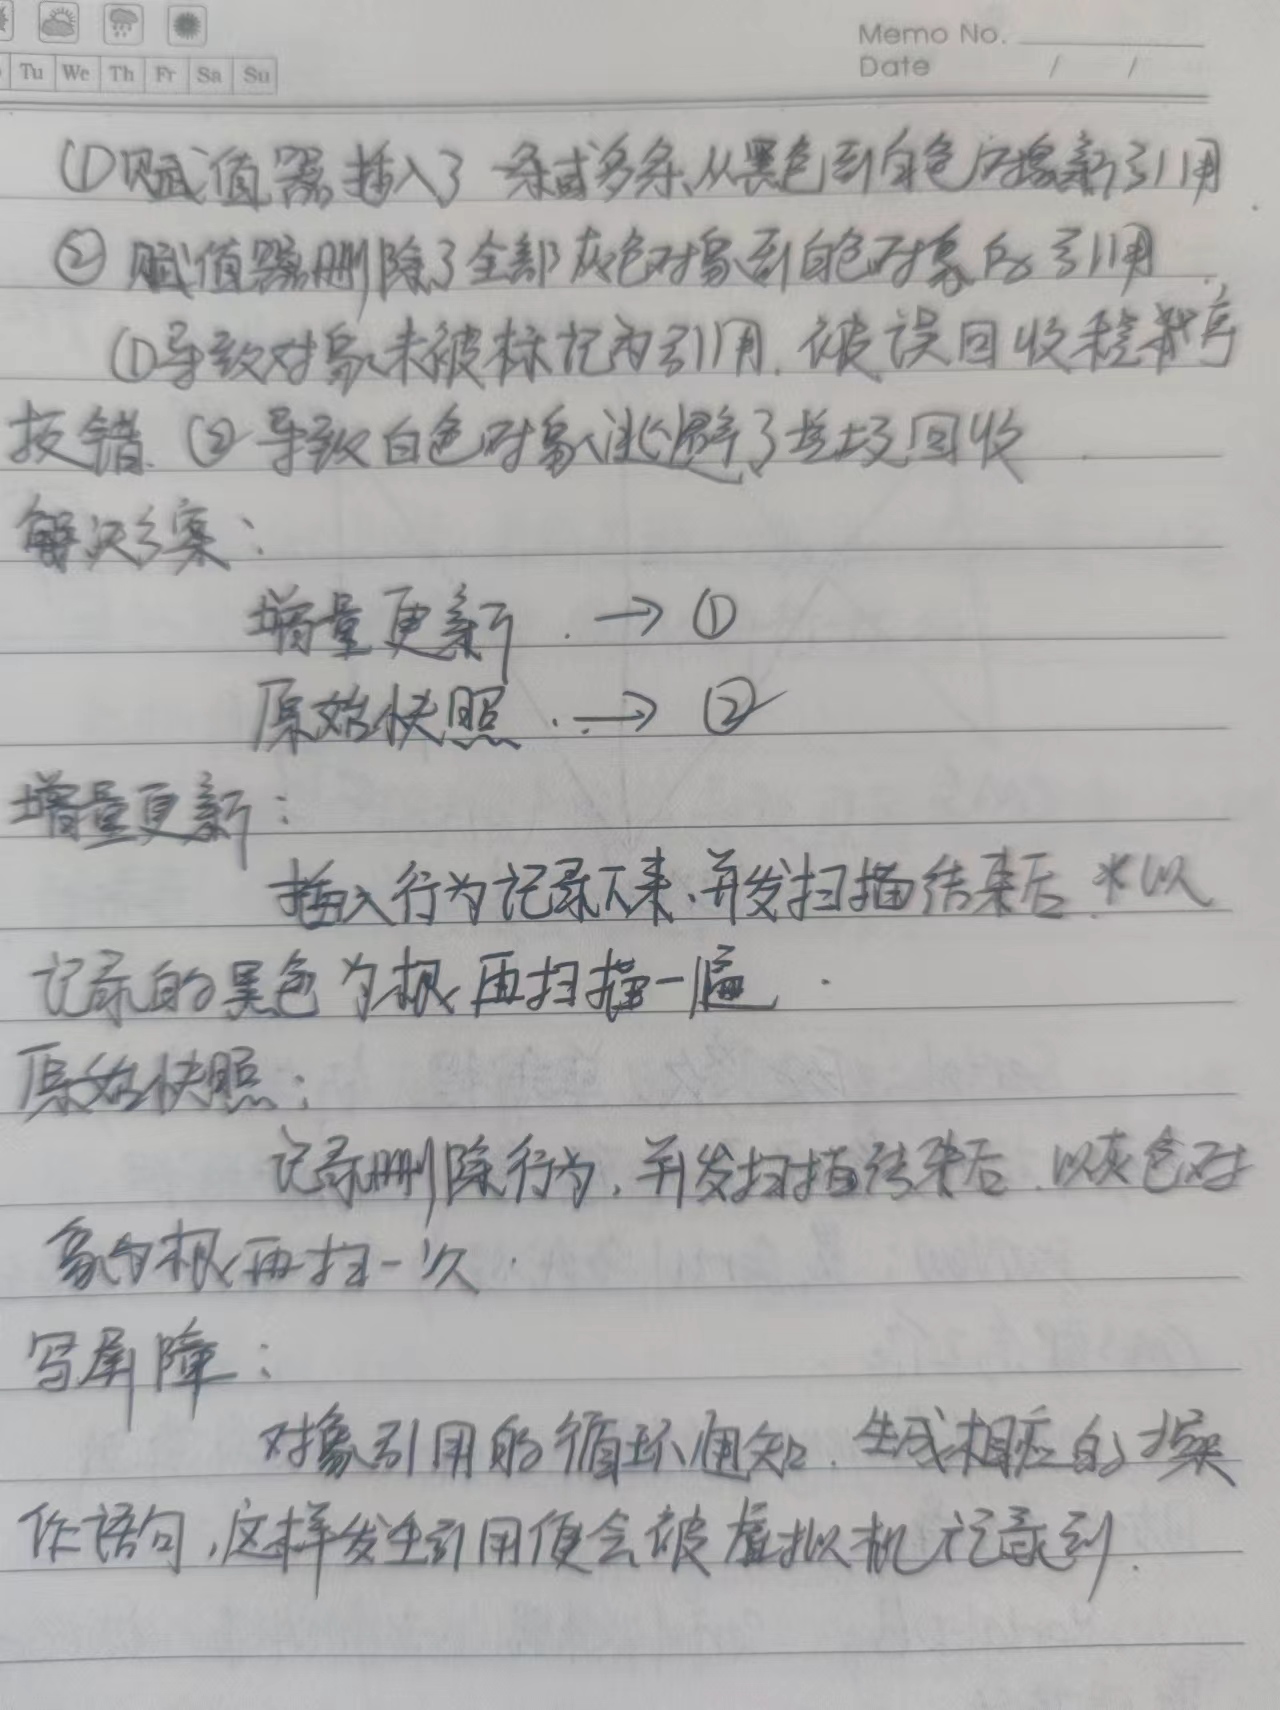 Tu We Th Fr Sa Su
Memo No.
Date / /
①赋值器插入了一条或多条从黑色到白色的新引用
②赋值器删除了全部灰色对象到白色对象的引用
①导致对象未被标记为引用,被误回收程序
报错.②导致白色对象逃避了垃圾回收
解决方案:
增量更新 → ①
原始快照 → ②
增量更新:
插入行为记录下来,并发扫描结束后,以
记录的黑色为根再扫描一遍.
原始快照:
记录删除行为,并发扫描结束后,以灰色对
象为根再扫一次.
写屏障:
对象引用的循环通知,生成相应的操
作语句,这样发生引用便会被虚拟机记录到.